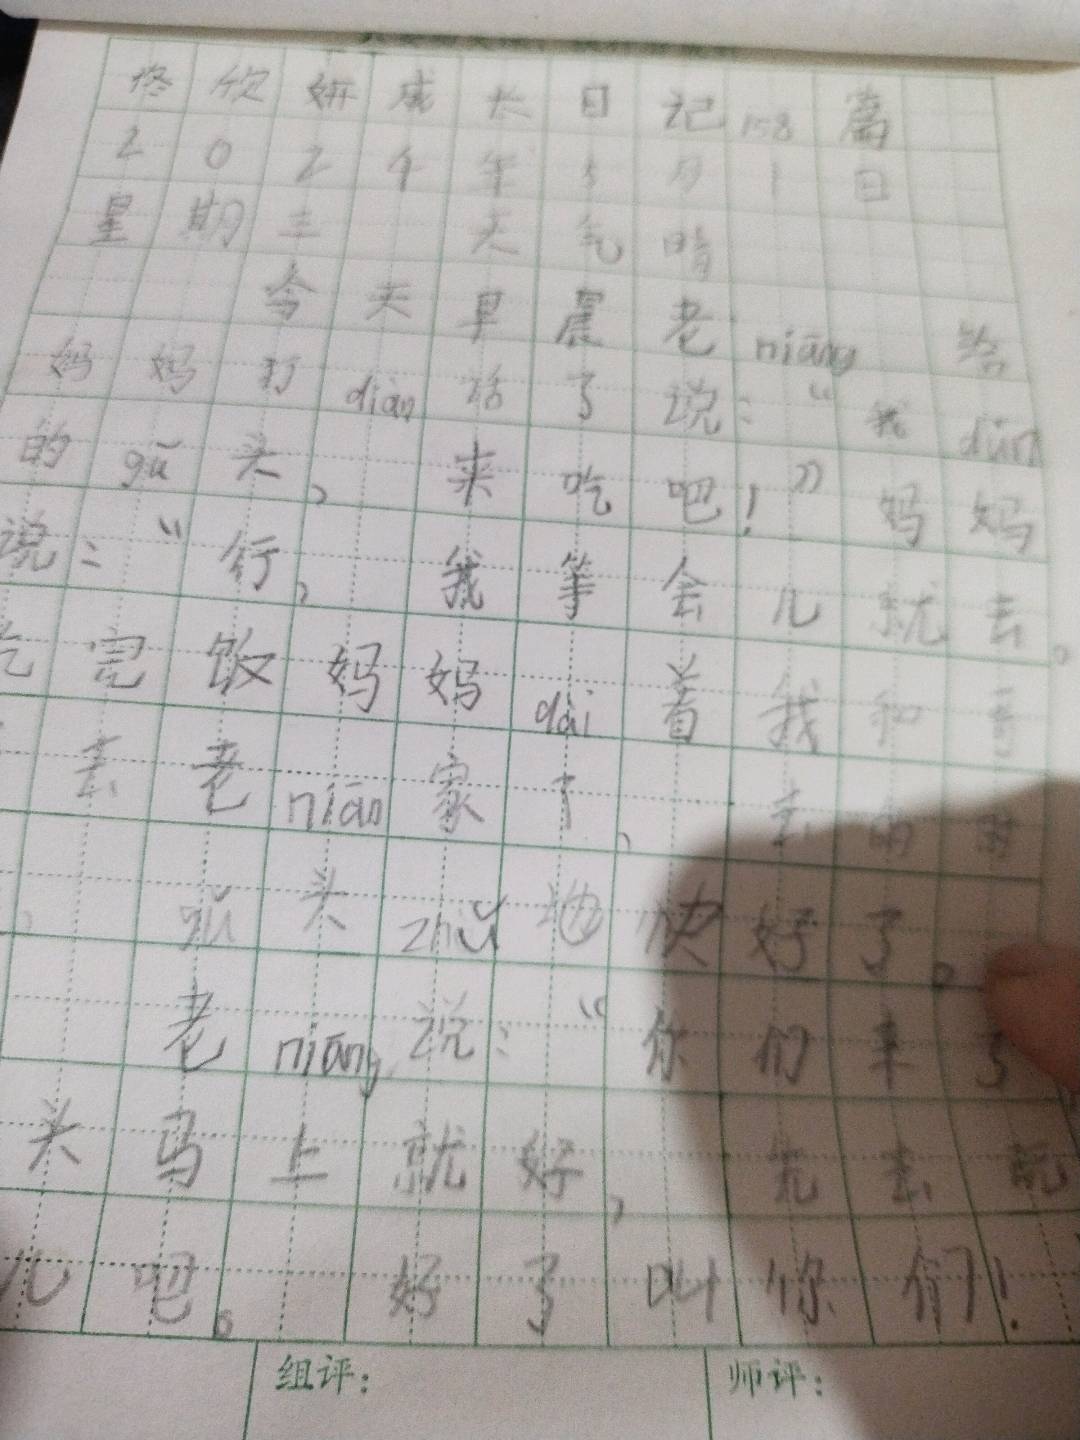 佟欣妍成长日记158篇
2024年5月1日
星期三 天气晴
今天早晨老niāng给
妈妈打diàn话了说：“我dùn
的gǔ头，来吃吧！”妈妈
说：“行，我等会儿就去。
吃完饭妈妈dài着我和哥
去老niān家了，去的时
，gǔ头zhǔ地快好了。
老niāng说：“你们来了
头马上就好，先去玩
儿吧。好了叫你们！
组评： 师评：